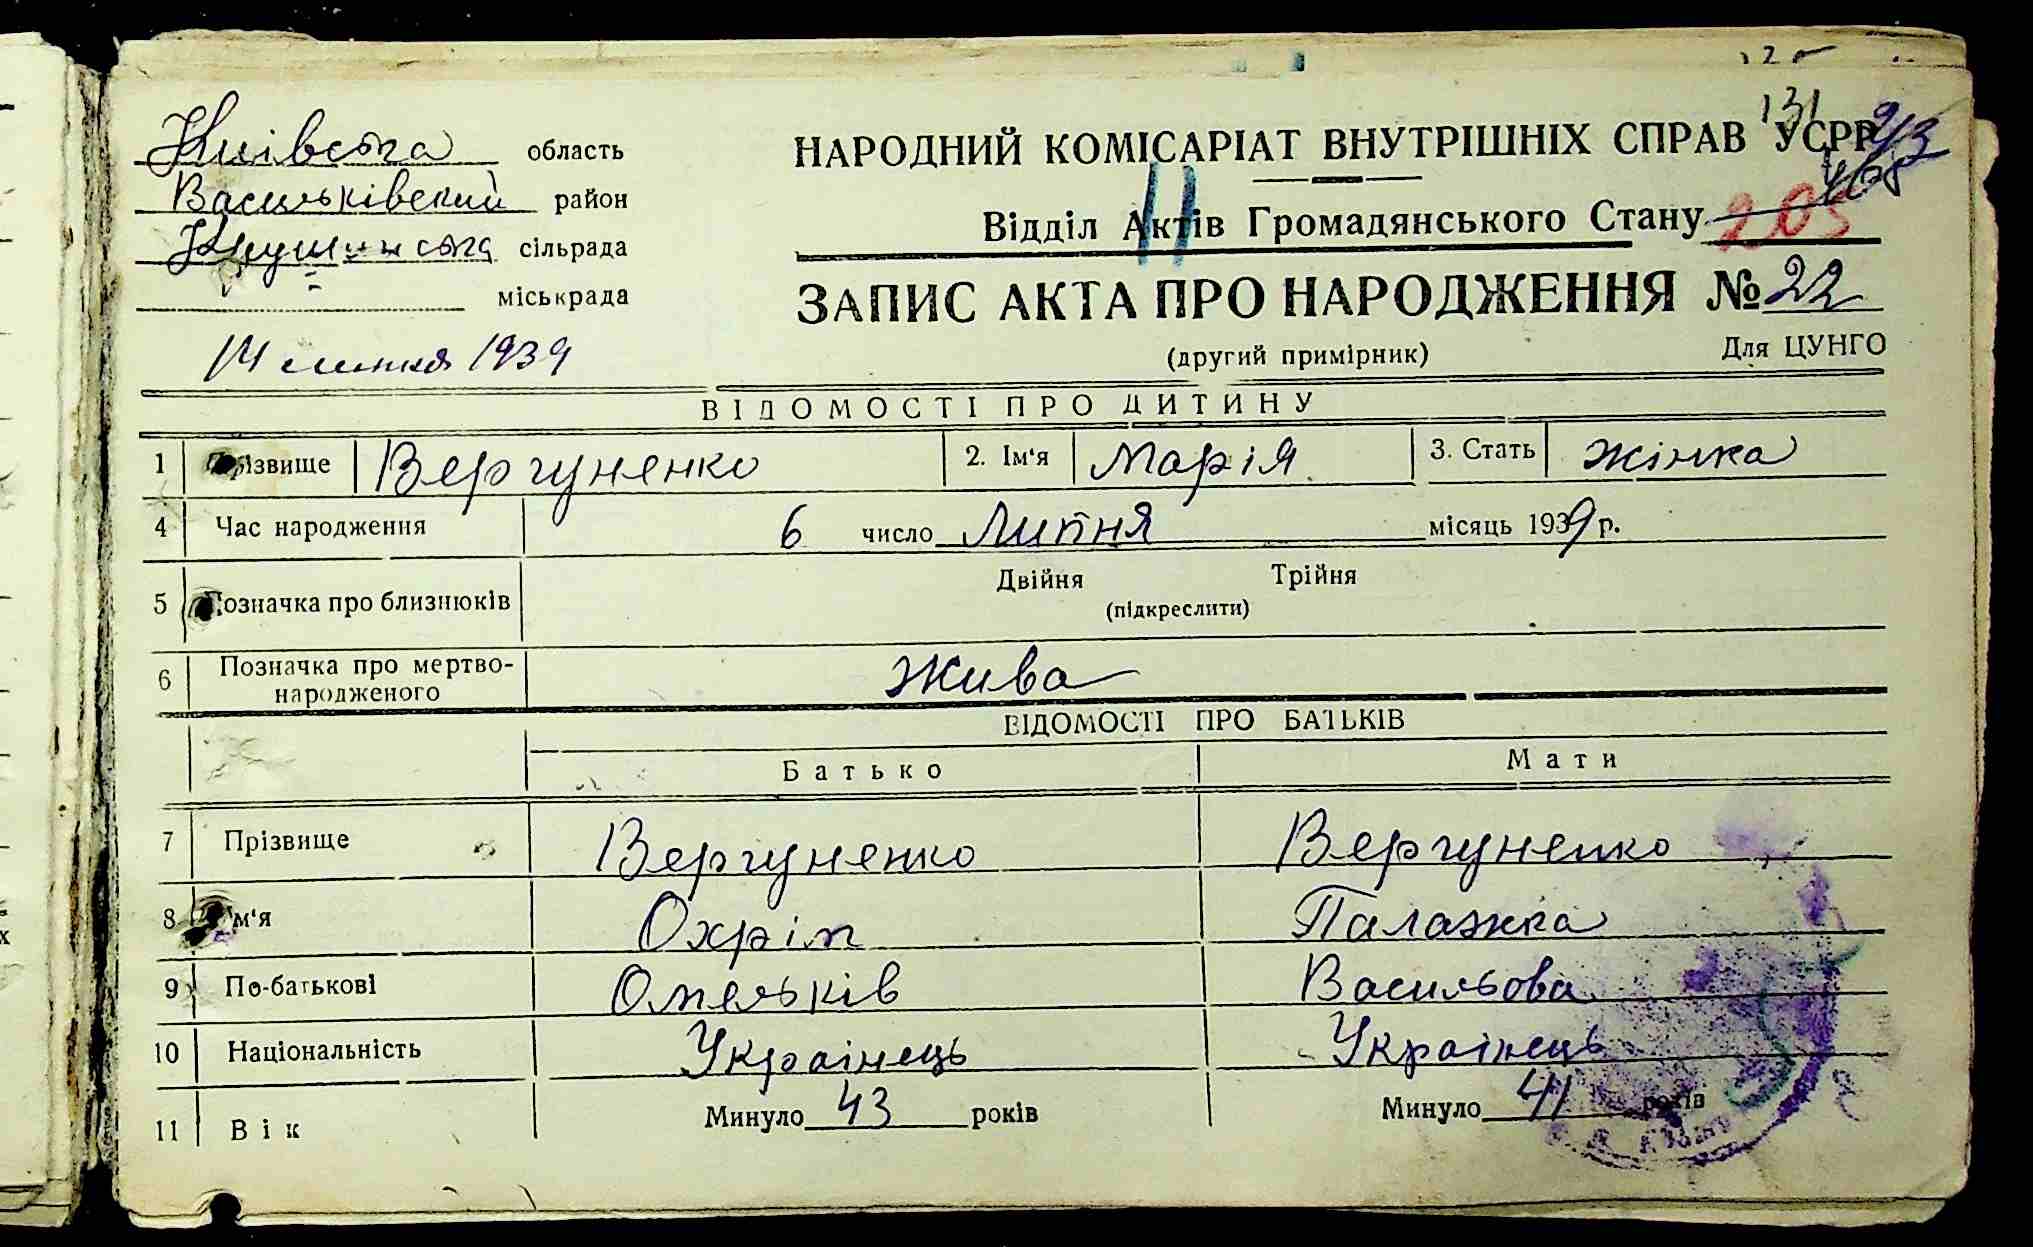 131
Київська область
НАРОДНИЙ КОМІСАРІАТ ВНУТРІШНІХ СПРАВ УСРР
Васильківский район
Відділ Актів Громадянського Стану 205
сільрада
міськрада
ЗАПИС АКТА ПРО НАРОДЖЕННЯ № 22
14 липня 1939
(другий примірник) Для ЦУНГО
ВІДОМОСТІ ПРО ДИТИНУ
1 Прізвище Вергуненко 2. Ім'я Марія 3. Стать жінка
4 Час народження 6 число Липня місяць 1939 р.
5 Позначка про близнюків Двійня Трійня
(підкреслити)
6 Позначка про мертво-
народженого Жива
ВІДОМОСТІ ПРО БАТЬКІВ
Батько Мати
7 Прізвище Вергуненко Вергуненко
8 Ім'я Охрім Палажка
9 По-батькові Омельків Васильова
10 Національність Українець Українець
11 Вік Минуло 43 років Минуло 41 років